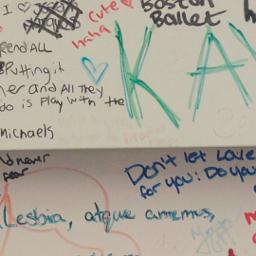 I ♡
cute
haha
Boston
Ballet
h
KAY
END ALL
Putting it
her and All They
do is Play with the
Michaels
never
fear
Don't let Love
for you: Do you
Lesbia, atque amemus,